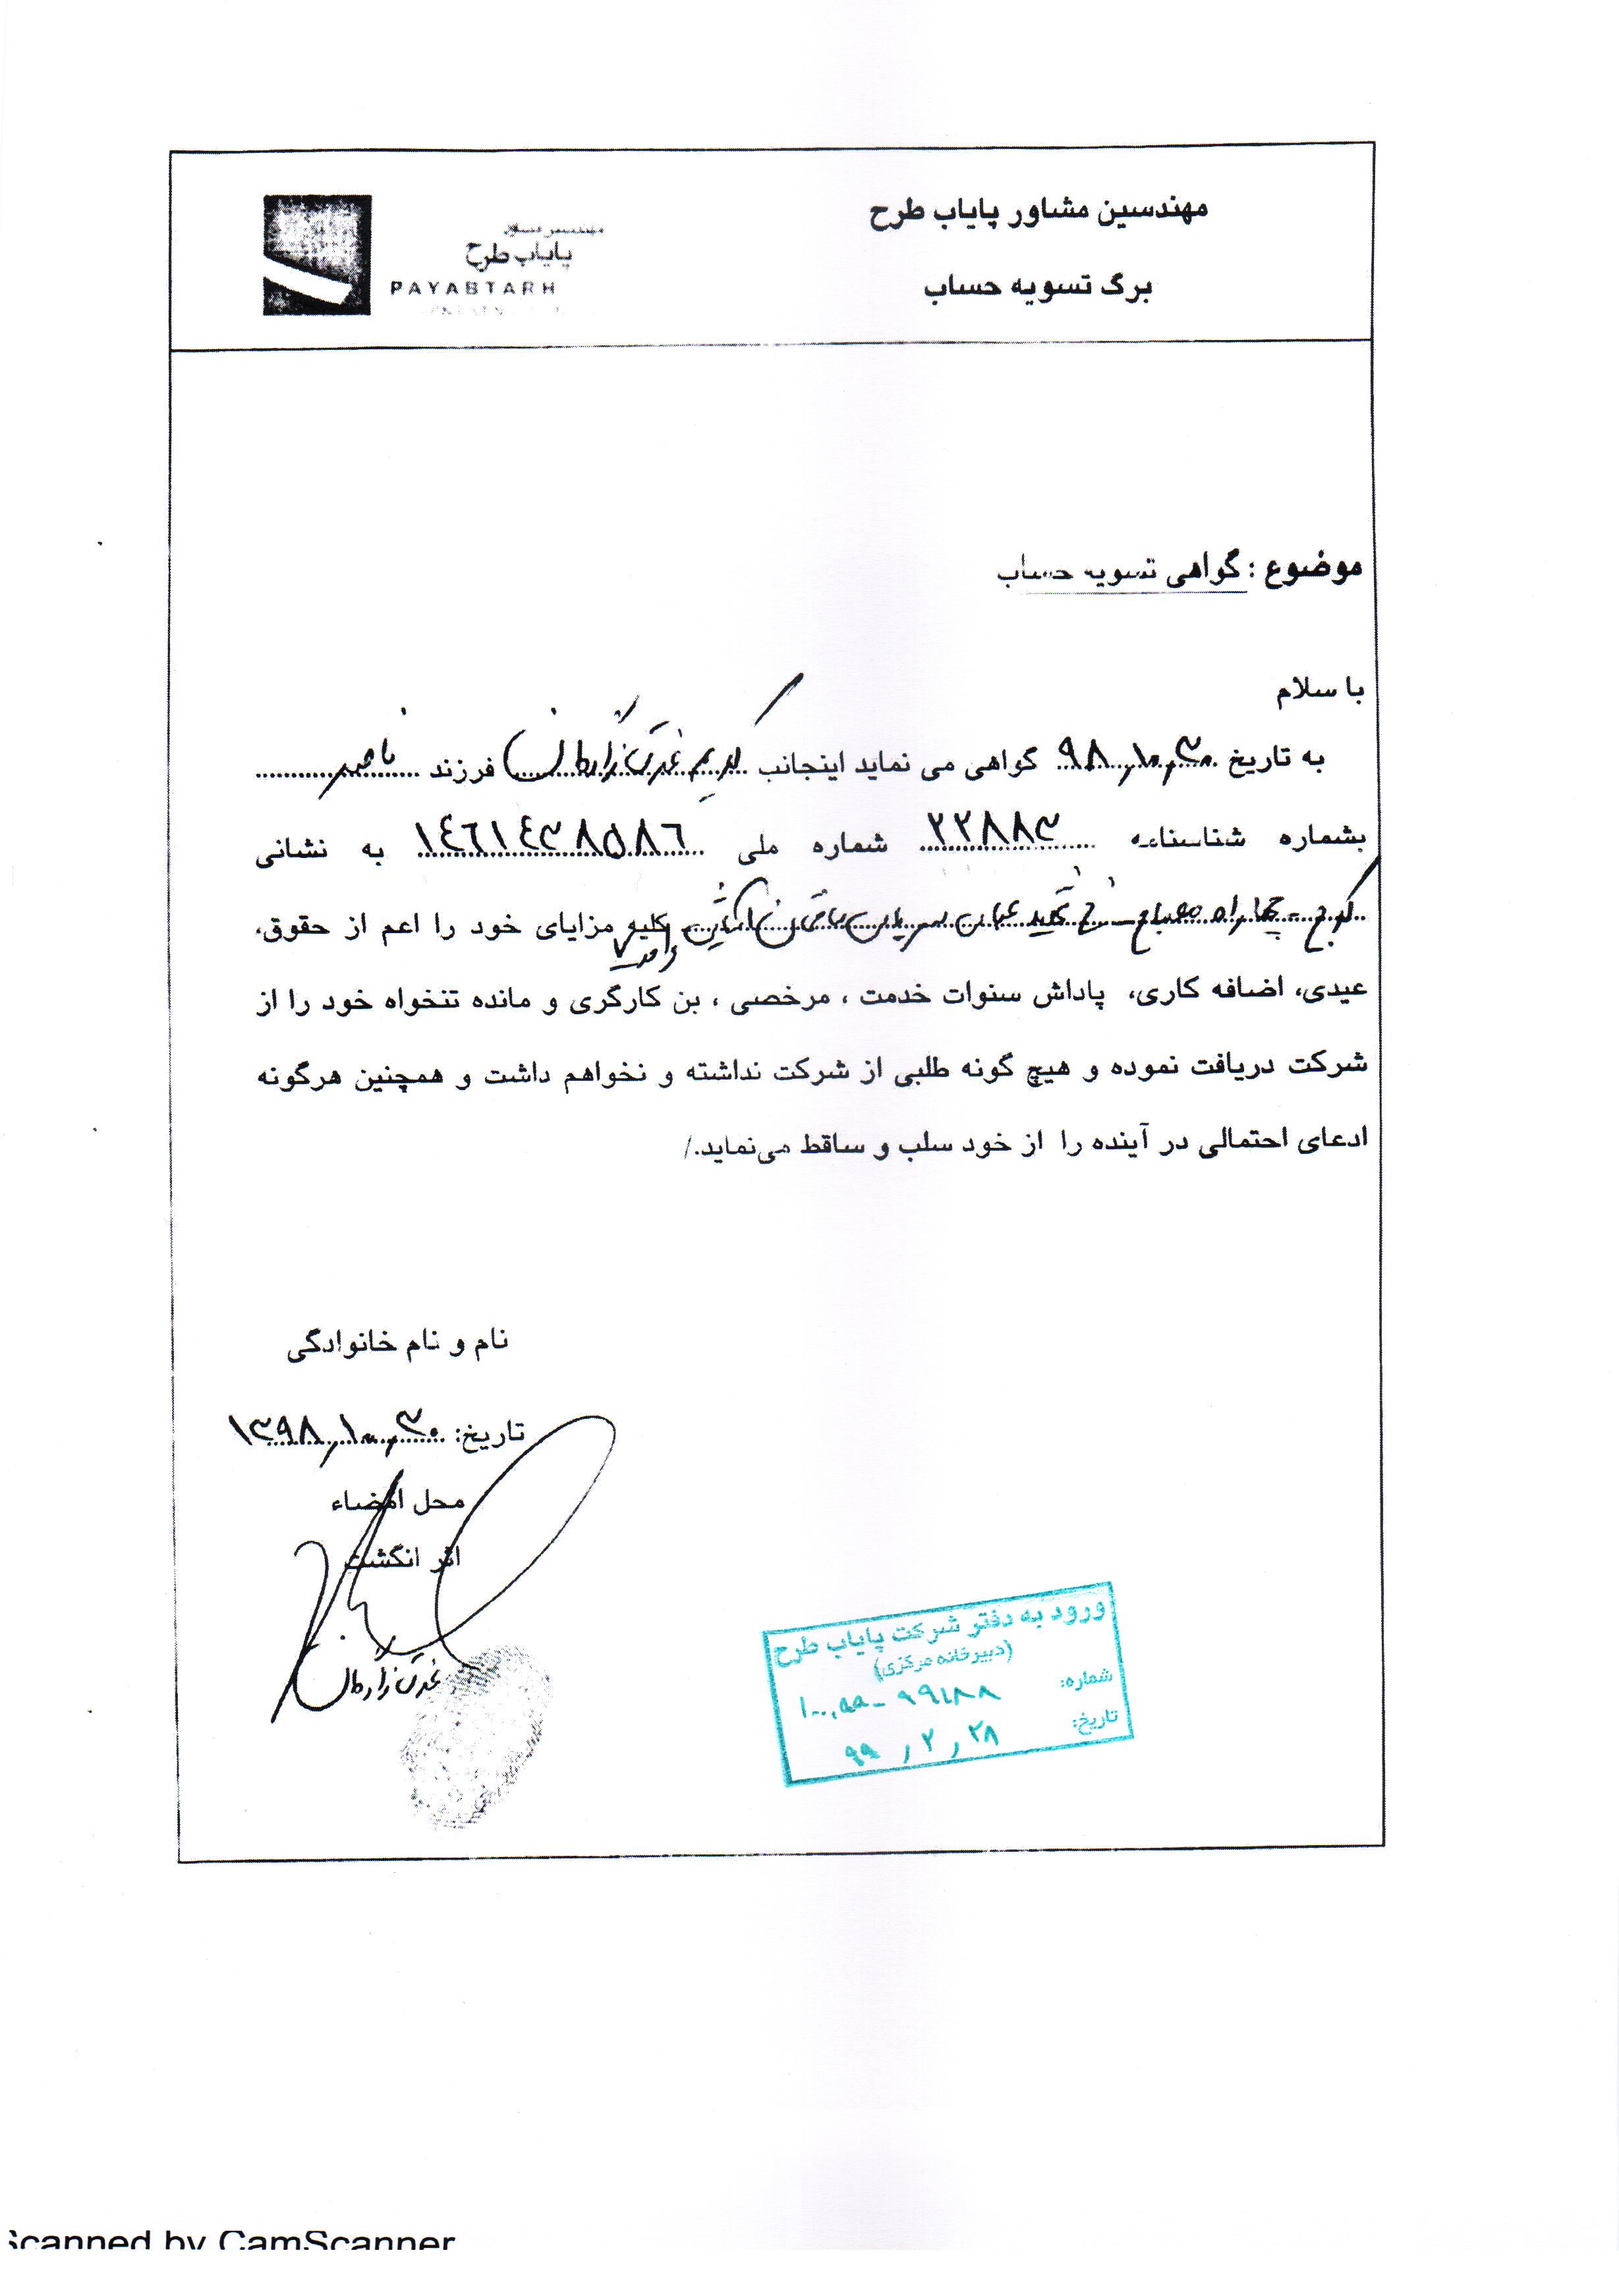 مهندسین مشاور پایاب طرح
برگ تسویه حساب
پایاب طرح
PAYABTARH
موضوع : گواهی تسویه حساب
با سلام
به تاریخ ۹۸,۱۰,۳۰ گواهی می نماید اینجانب کریم فرزند ناصر
بشماره شناسنامه ۲۲۸۸۳ شماره ملی ۱٤٦۱٤۳۸۵۸٦ به نشانی
کرج - چهار راه مصباح - کلیه مزایای خود را اعم از حقوق،
واحد ۷
عیدی، اضافه کاری، پاداش سنوات خدمت ، مرخصی ، بن کارگری و مانده تنخواه خود را از
شرکت دریافت نموده و هیچ گونه طلبی از شرکت نداشته و نخواهم داشت و همچنین هرگونه
ادعای احتمالی در آینده را از خود سلب و ساقط می‌نماید./
نام و نام خانوادگی
تاریخ: ۱۳۹۸,۱۰,۳۰
محل امضاء
اثر انگشت
ورود به دفتر شرکت پایاب طرح
(دبیرخانه مرکزی)
شماره:
تاریخ: ۹۹ , ۲ , ۲۸
Scanned by CamScanner